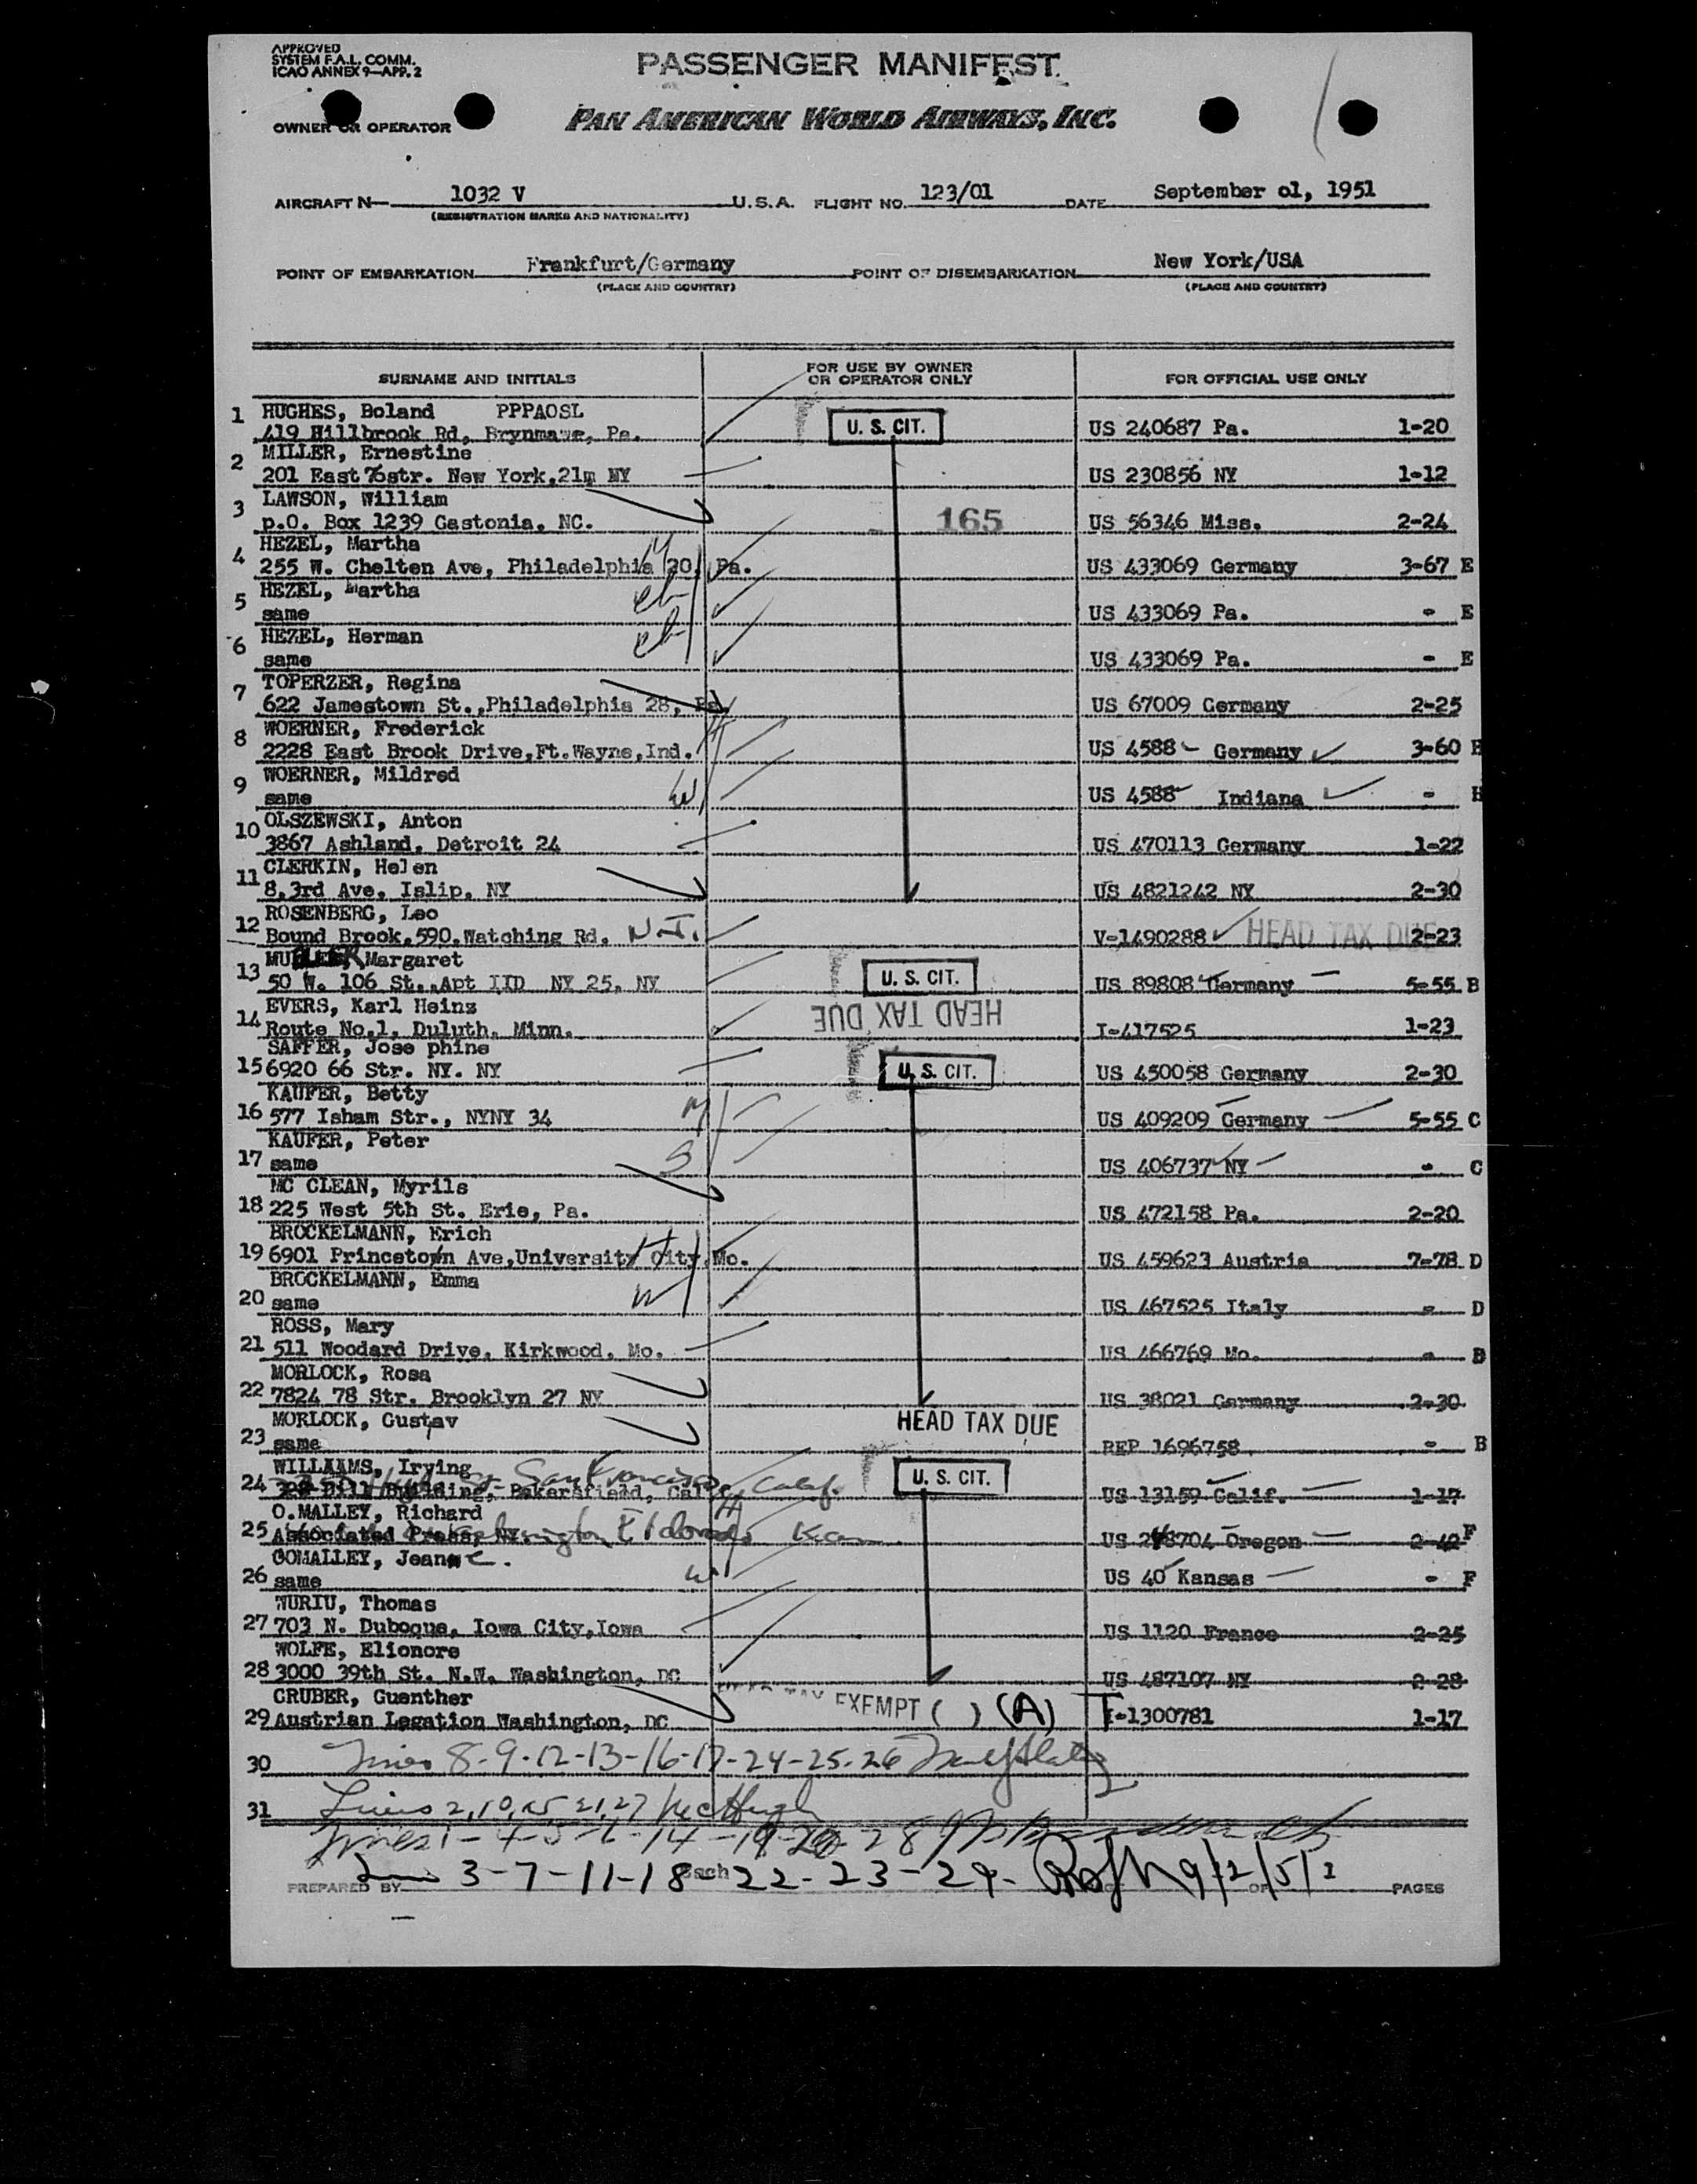 APPROVED
SYSTEM F.A.L. COMM.
ICAO ANNEX 9—APP. 2
PASSENGER MANIFEST
OWNER OR OPERATOR
PAN AMERICAN WORLD AIRWAYS, INC.
AIRCRAFT N— 1032 V U.S.A. FLIGHT NO. 123/01 DATE September 01, 1951
(REGISTRATION MARKS AND NATIONALITY)
POINT OF EMBARKATION Frankfurt/Germany POINT OF DISEMBARKATION New York/USA
(PLACE AND COUNTRY) (PLACE AND COUNTRY)
SURNAME AND INITIALS FOR USE BY OWNER OR OPERATOR ONLY FOR OFFICIAL USE ONLY
1 HUGHES, Boland PPPAOSL
419 Hillbrook Rd, Brynmawr, Pa. U. S. CIT. US 240687 Pa. 1-20
2 MILLER, Ernestine
201 East 76str. New York,21m NY US 230856 NY 1-12
3 LAWSON, William
p.O. Box 1239 Gastonia, NC. 165 US 56346 Miss. 2-24
4 HEZEL, Martha
255 W. Chelten Ave, Philadelphia 20, Pa. US 433069 Germany 3-67 E
5 HEZEL, Martha
same US 433069 Pa. - E
6 HEZEL, Herman
same US 433069 Pa. - E
7 TOPERZER, Regina
622 Jamestown St.,Philadelphia 28, Pa. US 67009 Germany 2-25
8 WOERNER, Frederick H
2228 East Brook Drive,Ft.Wayne,Ind. US 4588 Germany 3-60 H
9 WOERNER, Mildred
same W US 4588 Indiana - H
10 OLSZEWSKI, Anton
3867 Ashland, Detroit 24 US 470113 Germany 1-22
11 CLERKIN, Helen
8,3rd Ave, Islip, NY US 4821242 NY 2-30
12 ROSENBERG, Leo
Bound Brook,590.Watching Rd. N.J. V-1490288 HEAD TAX DUE 2-23
13 Margaret
50 W. 106 St.,Apt IID NY 25, NY U. S. CIT. US 89808 Germany 5-55 B
14 EVERS, Karl Heinz
Route No.1, Duluth, Minn. HEAD TAX DUE I-417525 1-23
SAFFER, Jose phine
15 6920 66 Str. NY. NY U. S. CIT. US 450058 Germany 2-30
KAUFER, Betty
16 577 Isham Str., NYNY 34 M US 409209 Germany 5-55 C
KAUFER, Peter
17 same S US 406737 NY - C
MC CLEAN, Myrils
18 225 West 5th St. Erie, Pa. US 472158 Pa. 2-20
BROCKELMANN, Erich
19 6901 Princetown Ave,University City Mo. H US 459623 Austria 7-78 D
BROCKELMANN, Emma
20 same W US 467525 Italy - D
ROSS, Mary
21 511 Woodard Drive, Kirkwood, Mo. US 466769 Mo. - B
MORLOCK, Rosa
22 7824 78 Str. Brooklyn 27 NY US 38021 Germany 2-30
MORLOCK, Gustav HEAD TAX DUE
23 same REP 1696758 - B
WILLIAMS, Irving San Francisco, Calif.
24 Building, Bakersfield, Calif. U. S. CIT. US 13159 Calif. 1-17
O.MALLEY, Richard H
25 Associated Press, NY. Kan US 248704 Oregon 2-42 F
OOMALLEY, Jeanne.
26 same W US 40 Kansas - F
WURIU, Thomas
27 703 N. Duboque, Iowa City,Iowa US 1120 France 2-25
WOLFE, Elionore
28 3000 39th St. N.W. Washington, DC US 487107 NY 2-28
CRUBER, Guenther HEAD TAX EXEMPT ( ) (A)
29 Austrian Legation Washington, DC I-1300781 1-17
30 Lines 8-9-12-13-16-17-24-25-26
31 Lines 2,10,15 21,27 McHugh
Lines 1-4-5-6-14-19-20-28
PREPARED BY 3-7-11-18 22-23-29- 9/2/51 OF PAGES